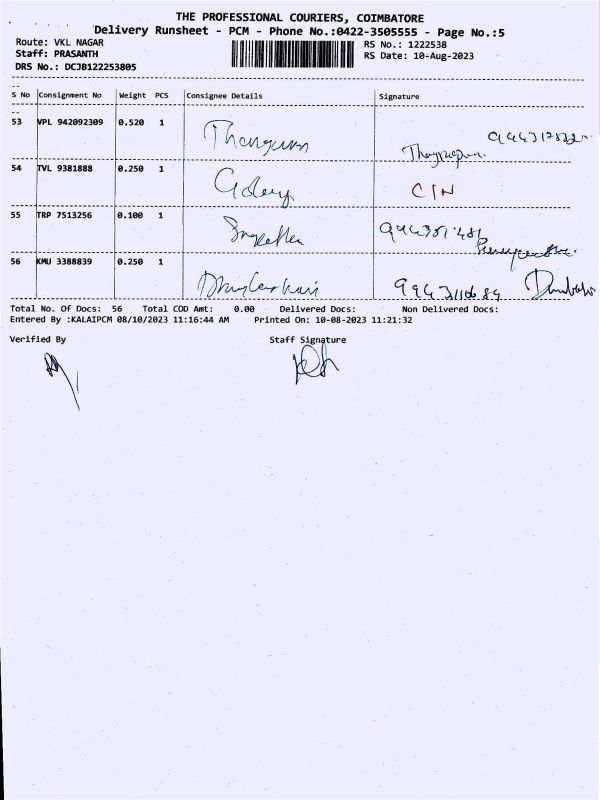 THE PROFESSIONAL COURIERS, COIMBATORE
Delivery Runsheet - PCM - Phone No.:0422-3505555 - Page No.:5
Route: VKL NAGAR
RS No.: 1222538
Staff: PRASANTH
RS Date: 10-Aug-2023
DRS No.: DCJB122253805
S No Consignment No Weight PCS Consignee Details Signature
53 VPL 942092309 0.520 1
54 TVL 9381888 0.250 1 C/N
55 TRP 7513256 0.100 1
56 KMU 3388839 0.250 1
Total No. Of Docs: 56 Total COD Amt: 0.00 Delivered Docs: Non Delivered Docs:
Entered By :KALAIPCM 08/10/2023 11:16:44 AM Printed On: 10-08-2023 11:21:32
Verified By Staff Signature